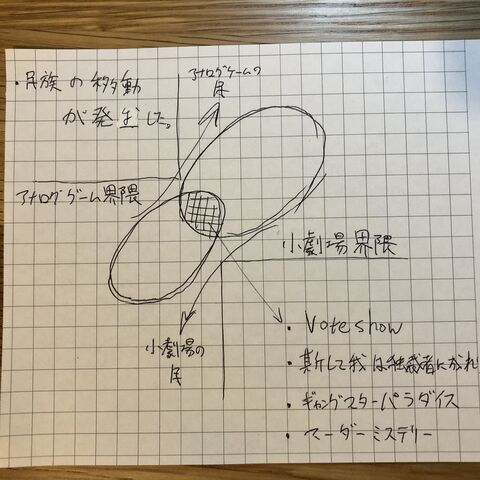 ・民族の移動
が発生した。
アナログゲームの
民
アナログゲーム界隈
小劇場界隈
小劇場の
民
・Vote show
・斯して我は独裁者に成れり
・ギャングスターパラダイス
・マーダーミステリー